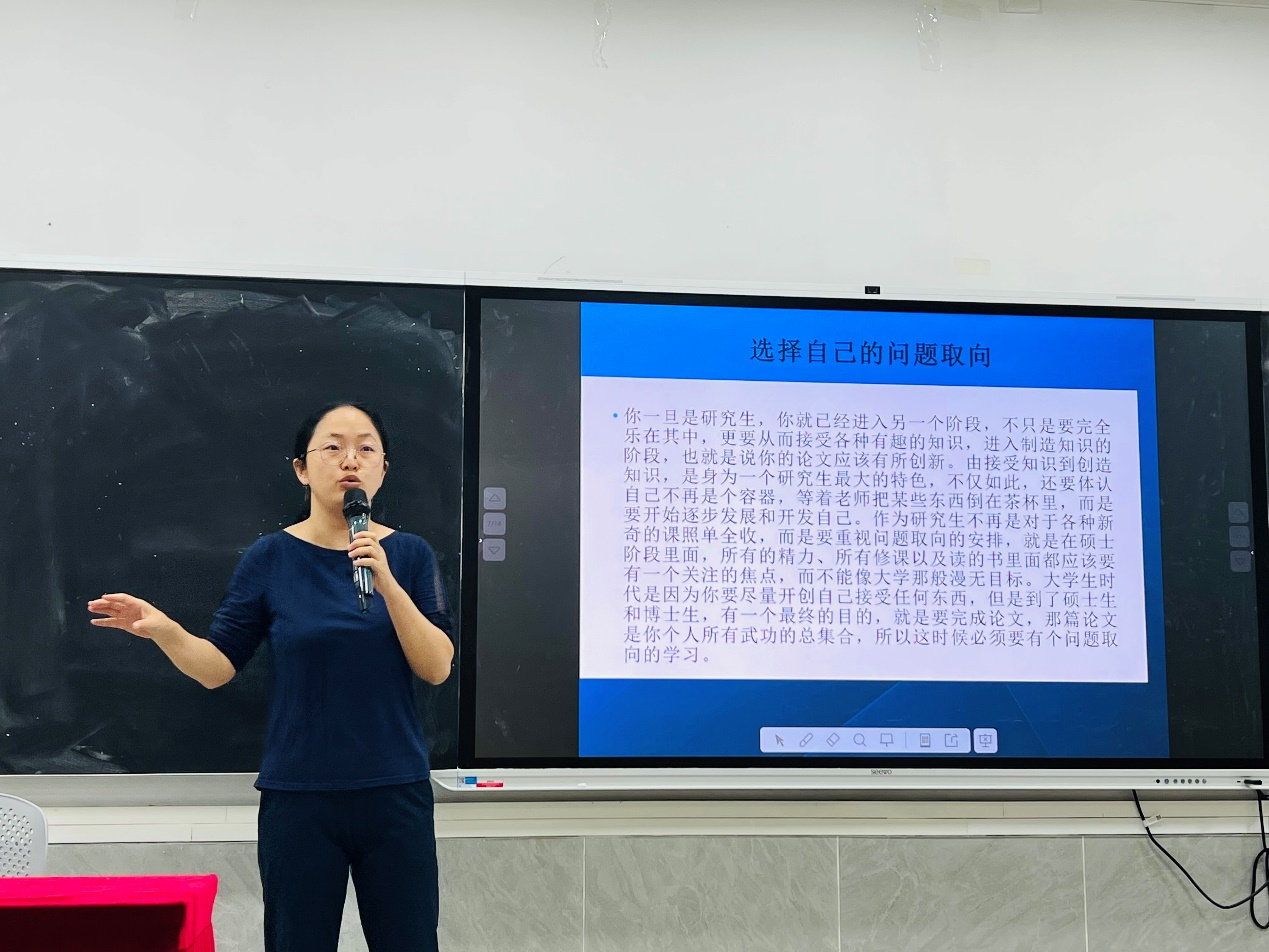 选择自己的问题取向
• 你一旦是研究生，你就已经进入另一个阶段，不只是要完全
乐在其中，更要从而接受各种有趣的知识，进入制造知识的
阶段，也就是说你的论文应该有所创新。由接受知识到创造
知识，是身为一个研究生最大的特色，不仅如此，还要体认
自己不再是个容器，等着老师把某些东西倒在茶杯里，而是
要开始逐步发展和开发自己。作为研究生不再是对于各种新
奇的课照单全收，而是要重视问题取向的安排，就是在硕士
阶段里面，所有的精力、所有修课以及读的书里面都应该要
有一个关注的焦点，而不能像大学那般漫无目标。大学生时
代是因为你要尽量开创自己接受任何东西，但是到了硕士生
和博士生，有一个最终的目的，就是要完成论文，那篇论文
是你个人所有武功的总集合，所以这时候必须要有个问题取
向的学习。
seewo